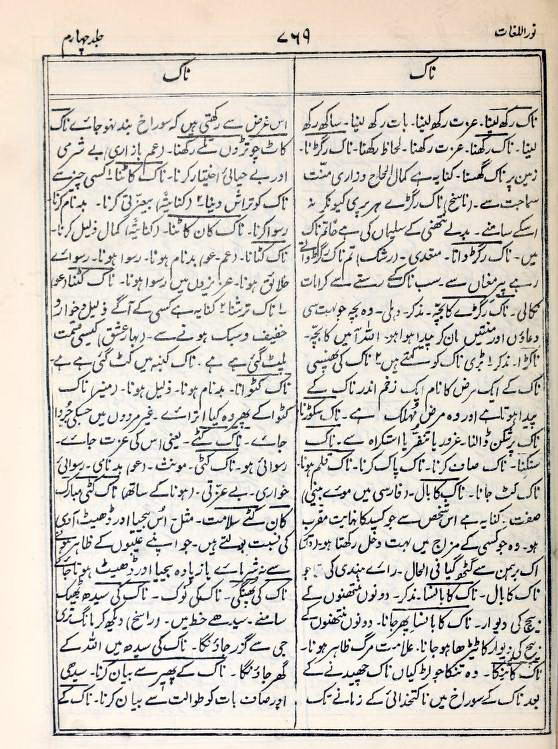 نور اللغات
۷۶۹
جلد چہارم
ناک
ناک رکھ لینا۔ عزت رکھ لینا۔ بات رکھ لینا۔ ساکھ رکھ
لینا۔ ناک رکھنا۔ عزت رکھنا۔ لحاظ رکھنا۔ ناک رگڑنا۔
زمین پر ناک گھسنا۔ کنایہ ہے کمال الحاح و زاری منّت
سماجت سے۔ (ناسخ) ناک رگڑے ہر پری کیونکر نہ
اسکے سامنے۔ بدلے نتھنی کے سلیماں کی ہے خاتم ناک
میں۔ ناک رگڑوانا۔ متعدی۔ (رشک) تم ناک رگڑواتے
رہے پیر مغاں سے۔ سب ناک کے رستے سے کرامات
نکالی۔ ناک رگڑے کا بچّہ۔ مذکر۔ دہلی۔ وہ بچہ جو بہت سی
دعاؤں اور منتیں مان کر پیدا ہوا ہو۔ اللہ آمیں کا بچّہ۔
ناکڑا۔ مذکر ۱ بڑی ناک کو کہتے ہیں ۲ ناک کی پھنسی
ناک کے ایک مرض کا نام ایک زخم اندر ناک کے
پیدا ہوتا ہے اور وہ مرض مہلک ہے۔ ناک سکوڑنا
ناک پر شکن ڈالنا۔ غرور یا تنفر یا استکراہ سے۔ ناک
سنکنا۔ ناک صاف کرنا۔ ناک پاک کرنا۔ ناک قلم ہونا۔
ناک کٹ جانا۔ ناک کا بال۔ (فارسی میں موے بینی)
صفت۔ کنایہ ہے اس شخص سے جو کسیکا نہایت مقرب
ہو۔ وہ جو کسی کے مزاج میں بہت دخل رکھتا ہو۔
اک برہمن سے گٹھ گیا فی الحال۔ راے مہندی کی تھا جو
ناک کا بال۔ ناک کا بانسا۔ مذکر۔ دونوں نتھنوں کے
بیچ کی دیوار۔ ناک کا بانسا پھر جانا۔ دونوں نتھنوں کے
بیچ کی دیوار کا ٹیڑھا ہو جانا۔ علامت مرگ ظاہر ہونا۔
ناک کا تنکا۔ وہ تنکا جو لڑکیاں ناک چھیدنے کے
بعد ناک کے سوراخ میں ناکتخدائی کے زمانے تک
ناک
اس غرض سے رکھتی ہیں کہ سوراخ بند نہو جائے ناک
کاٹ چوتڑوں تلے رکھنا۔ (عم بازاری) بے شرمی
اور بے حیائی اختیار کرنا۔ ناک کاٹنا ۱ کسی چیز سے
ناک کو تراش دینا ۲ (کنایۃً) بیعزتی کرنا۔ بدنام کرنا
رسوا کرنا۔ ناک کان کاٹنا۔ (کنایۃً) کمال ذلیل کرنا۔
ناک کٹانا۔ (عم۔ عو) بدنام ہونا۔ رسوا ہونا۔ رسوائے
خلائق ہونا۔ عزیزوں میں رسوا ہونا۔ ناک کٹنا (عو)
۱ ناک ترشنا ۲ کنایہ ہے کسی کے آگے ذلیل خوار و
خفیف و سبک ہونے سے۔ (بہار عشق) کیسی قسمت
پلٹ گئی ہے ہے۔ ناک کنبہ میں کٹ گئی ہے ہے۔
ناک کٹوانا۔ بدنام ہونا۔ ذلیل ہونا۔ (منیر) ناک
کٹوا کے پھر وہ کیا اترائے۔ غیر مردوں میں جسکی جُروا
جائے۔ ناک کٹے۔ یعنی اس کی عزت جائے۔
رسوائی ہو۔ ناک کٹی۔ مونث۔ (عو) بدنامی۔ رسوائی
خواری۔ بے عزتی۔ (ہونا کے ساتھ) ناک کٹی مبارک
کان کٹے سلامت۔ مثل۔ اس بیحیا اور ڈھیٹ آدمی
کی نسبت بولتے ہیں۔ جو اپنے عیبوں کے ظاہر ہونے
سے نہ شرمائے بلکہ زیادہ بیحیا اور ڈھیٹ ہوتا جائے
ناک کی پھنگی۔ ناک کی نوک۔ ناک کی سیدھ ٹھیک
سامنے۔ سیدھے خط میں۔ (راسخ) دیکھ کر مانگ تری
جی سے گزر جاؤنگا۔ ناک کی سیدھ میں اللہ کے
گھر جاؤنگا۔ ناک کے پھیر سے بیان کرنا۔ سیدھی
اور صاف بات کو طوالت سے بیان کرنا۔ ناک کے